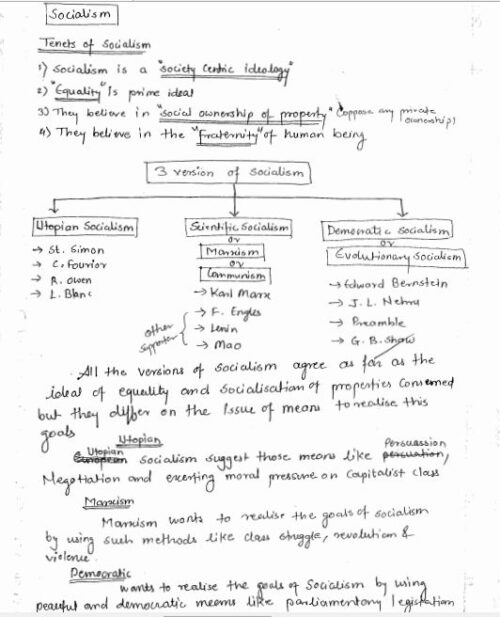 Socialism
Tenets of Socialism
1) Socialism is a "society centric ideology"
2) "Equality" is prime ideal
3) They believe in "social ownership of property" (oppose any private
ownership)
4) They believe in the "fraternity" of human being
3 version of socialism
Utopian Socialism
→ St. Simon
→ C. Fourior
→ R. Owen
→ L. Blanc
Scientific Socialism
or
Marxism
or
Communism
→ Karl Marx
→ F. Engles
→ Lenin
→ Mao
other
supporter
Democratic Socialism
or
Evolutionary Socialism
→ Edward Bernstein
→ J.L. Nehru
→ Preamble
→ G.B. Shaw
All the versions of socialism agree as far as the
ideal of equality and socialisation of properties concerned
but they differ on the issue of means to realise this
goals
Utopian
Utopian socialism suggest those means like Persuassion,
Negotiation and exerting moral pressure on capitalist class
Marxism
Marxism wants to realise the goals of socialism
by using such methods like class struggle, revolution &
violence.
Democratic
wants to realise the goals of Socialism by using
peaceful and democratic means like parliamentary legistation